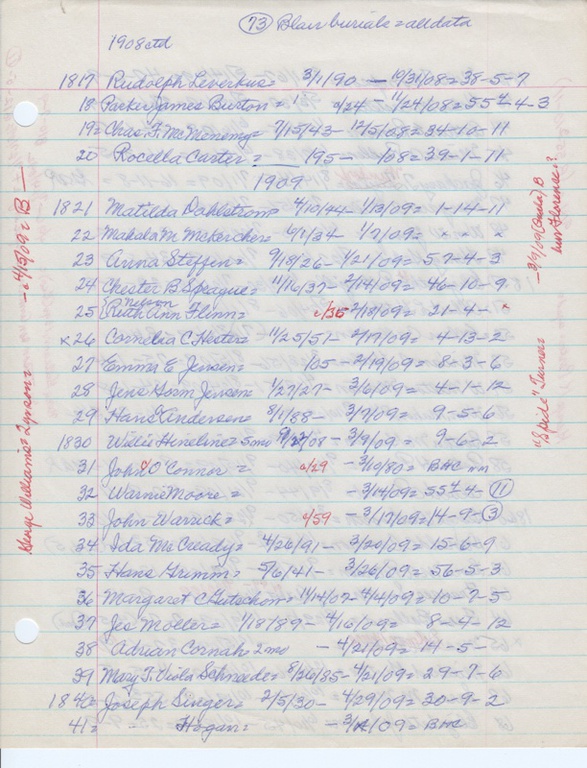 73 Blair burials = all data
1908 ctd
1817 Rudolph Leverkus = 3/1/90 — 10/31/08 = 38-5-7
18 Parker James Buston = 9/24 - 11/24/08 = 55 1/2-4-3
19 = Chas. F. McMenemy = 7/15/43 - 12/5/08 = 34-10-11
20 Rocella Carter = 195 - 108 = 39-1-11
1909
1821 Matilda Dahlstrom 4/10/44 - 1/13/09 = 1-14-11
22 Mahala M. McKercher = 6/1/34 - 1/7/09 = x x x
23 Anna Steffen = 9/18/26 - 1/21/09 = 57-4-3
24 Chester B. Sprague = 11/16/37 - 2/14/09 = 46-10-9
25 Ruth Ann Flinn = c/35 2/18/09 = 21-4- x
x 26 Cornelia C. Hester = 11/25/51 - 2/17/09 = 4-13-2
27 Emma E. Jensen = 105 - 2/19/09 = 8-3-6
28 Jens Gorm Jensen = 1/27/27 - 3/6/09 = 4-1-12
29 Hans Andersen = 8/1/88 - 3/7/09 = 9-5-6
1830 Willie Hineline = 5mo 9/27/08 - 3/9/09 = 9-6-2
31 John O'Connor = c/29 - 3/19/80 = BHC
32 Warnie Moore = - 3/14/09 = 55 1/2-4-11
33 John Warrick = c/59 - 3/17/09 = 14-9-3
34 Ida McCready = 4/26/91 - 3/20/09 = 15-6-9
35 Hans Grimm = 5/6/41 - 3/26/09 = 56-5-3
36 Margaret C. Gutschow = 11/14/07 - 4/4/09 = 10-7-5
37 Jes Moller = 1/18/89 - 4/16/09 = 8-4-12
38 Adrian Cornah = 2mo - 4/21/09 = 14-5-
39 Mary F. Viola Schroeder = 8/26/85 - 4/21/09 = 29-7-6
1840 = Joseph Singer = 2/5/30 - 4/29/09 = 30-9-2
41 = Hogan = - 3/ /09 = BHC
George Williams = Synson = - 4/15/09 = B —
"Spide" Turner = - 3/9/09 B
Florence?